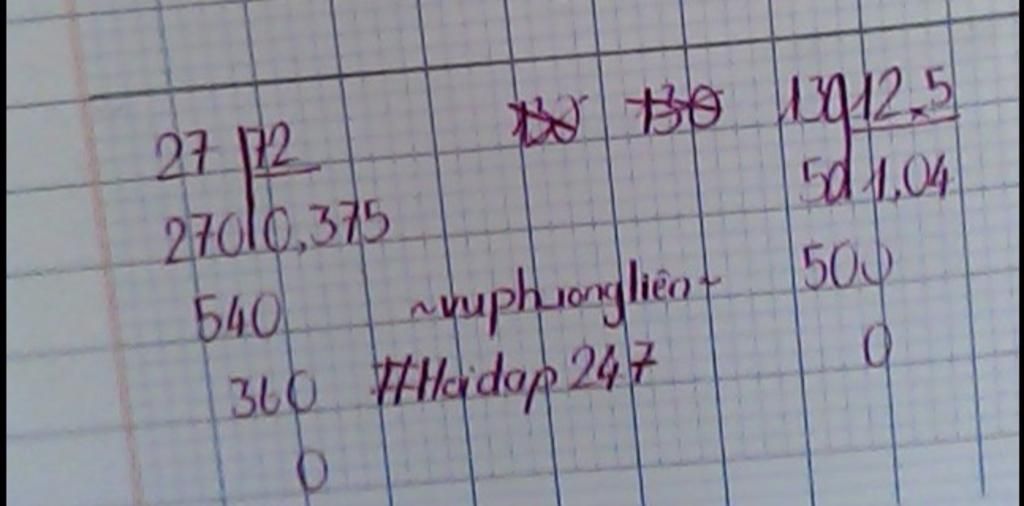 27 72 130 130 130 12.5
270 0,375 50 1,04
540 ~vuphuonglien~ 500
360 #Hoidap247 0
0